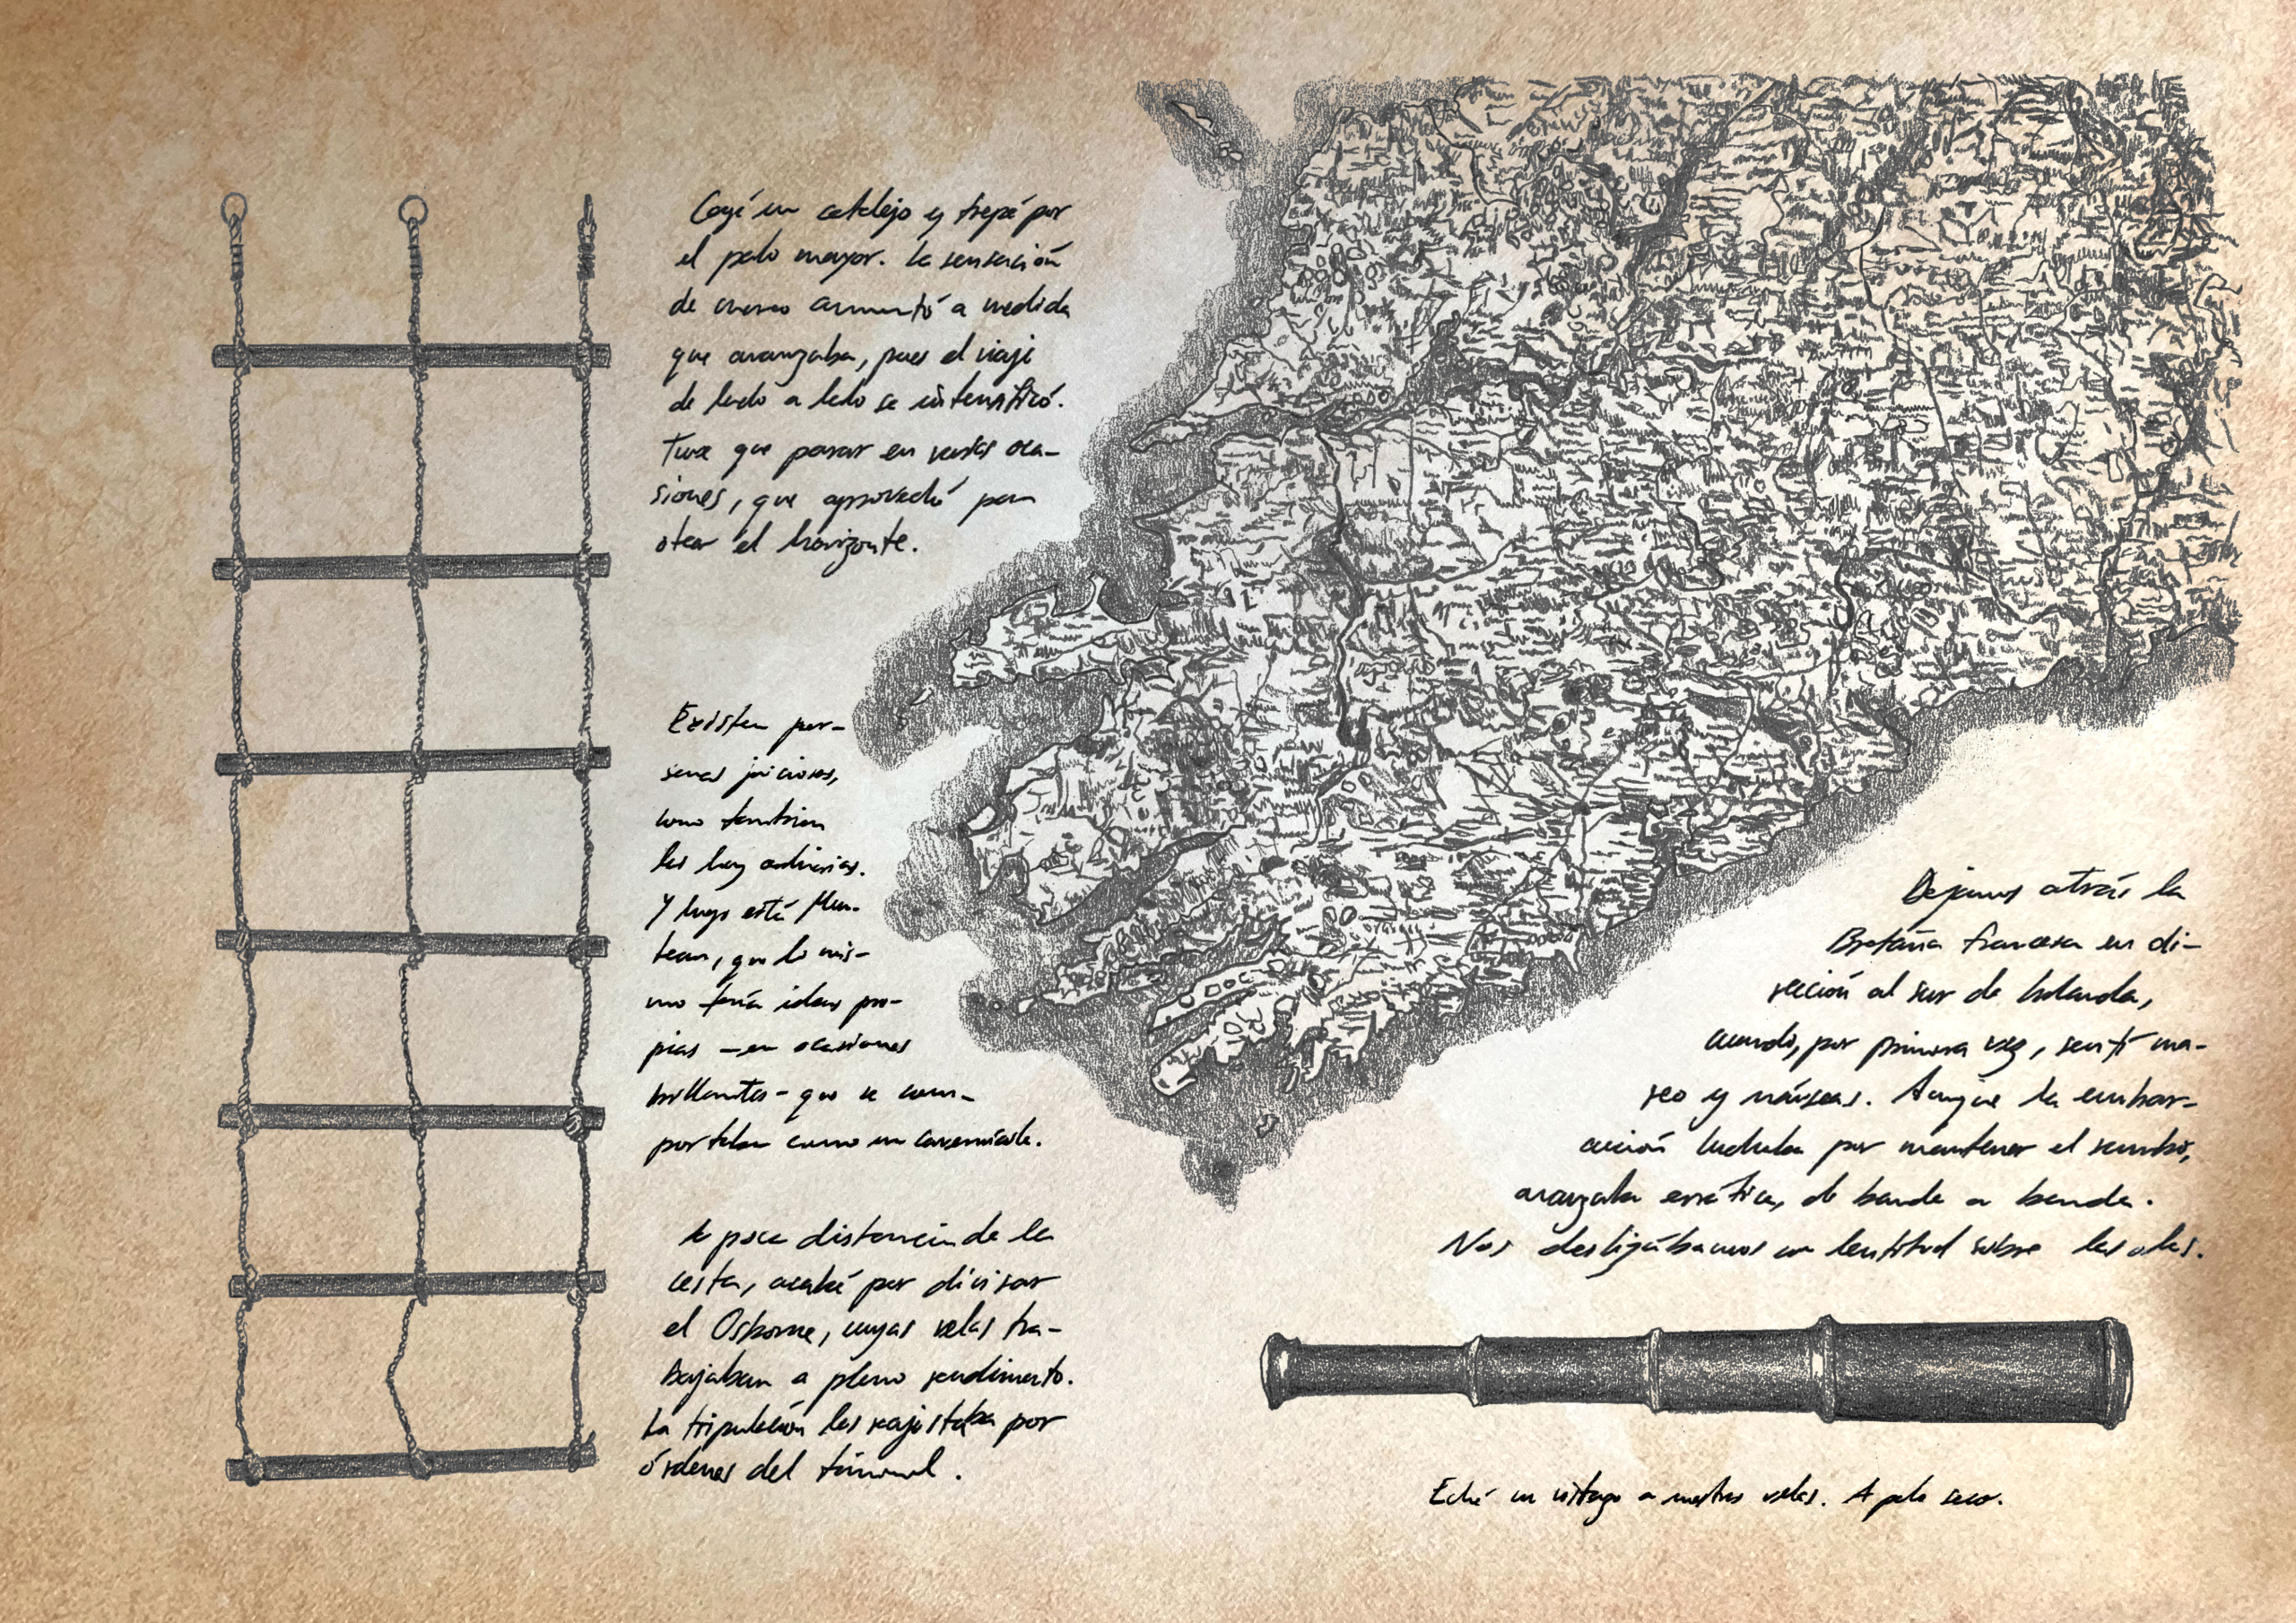 Cogí un catalejo y trepé por
el palo mayor. La sensación
de mareo aumentó a medida
que avanzaba, pues el viaje
de lado a lado se intensificó.
Tuve que parar en varias oca-
siones, que aproveché para
otear el horizonte.
Existen per-
sonas juiciosas,
como también
las hay ordinarias.
Y luego está
que lo mis-
mo tenía ideas pro-
pias - en ocasiones
brillantes - que se com-
portaba como un cavernícola.
A poca distancia de la
cesta, acabé por divisar
el Osborne, cuyas velas tra-
bajaban a pleno rendimiento.
La tripulación las reajustaba por
órdenes del timonel.
Dejamos atrás la
Bretaña francesa en di-
rección al sur de Irlanda,
cuando, por primera vez, sentí ma-
reo y náuseas. Aunque la embar-
cación luchaba por mantener el rumbo,
avanzaba errática, de banda a banda.
Nos deslizábamos con lentitud sobre las olas.
Eché un vistazo a nuestras velas. A palo seco.